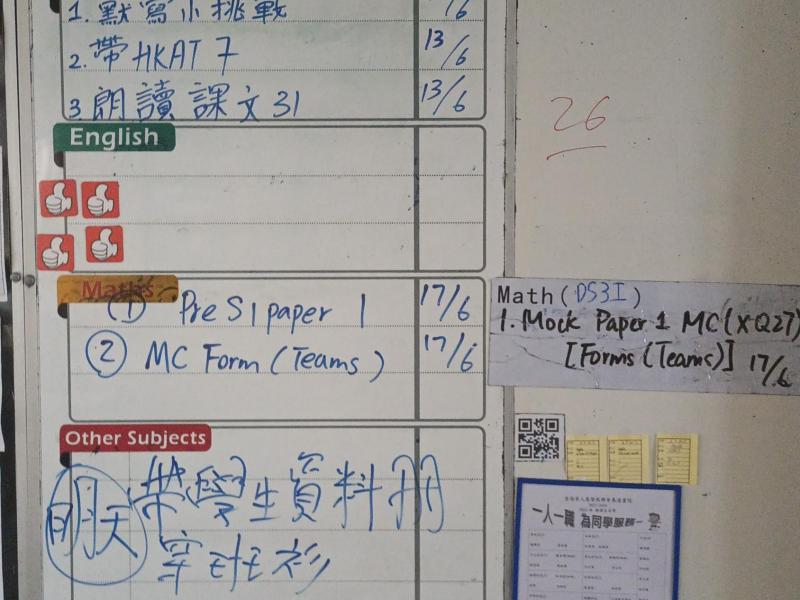 1. 默寫小挑戰 /6
2. 帶 HKAT 7 13/6
3 朗讀課文 31 13/6
English
26
Maths
① Pre S1 paper 1 17/6
② MC Form (Teams) 17/6
Math (DS3I)
1. Mock Paper 1 MC (XQ27)
[Forms (Teams)] 17/6
Other Subjects
明天 帶學生資料冊
穿社衫
一人一職 為同學服務